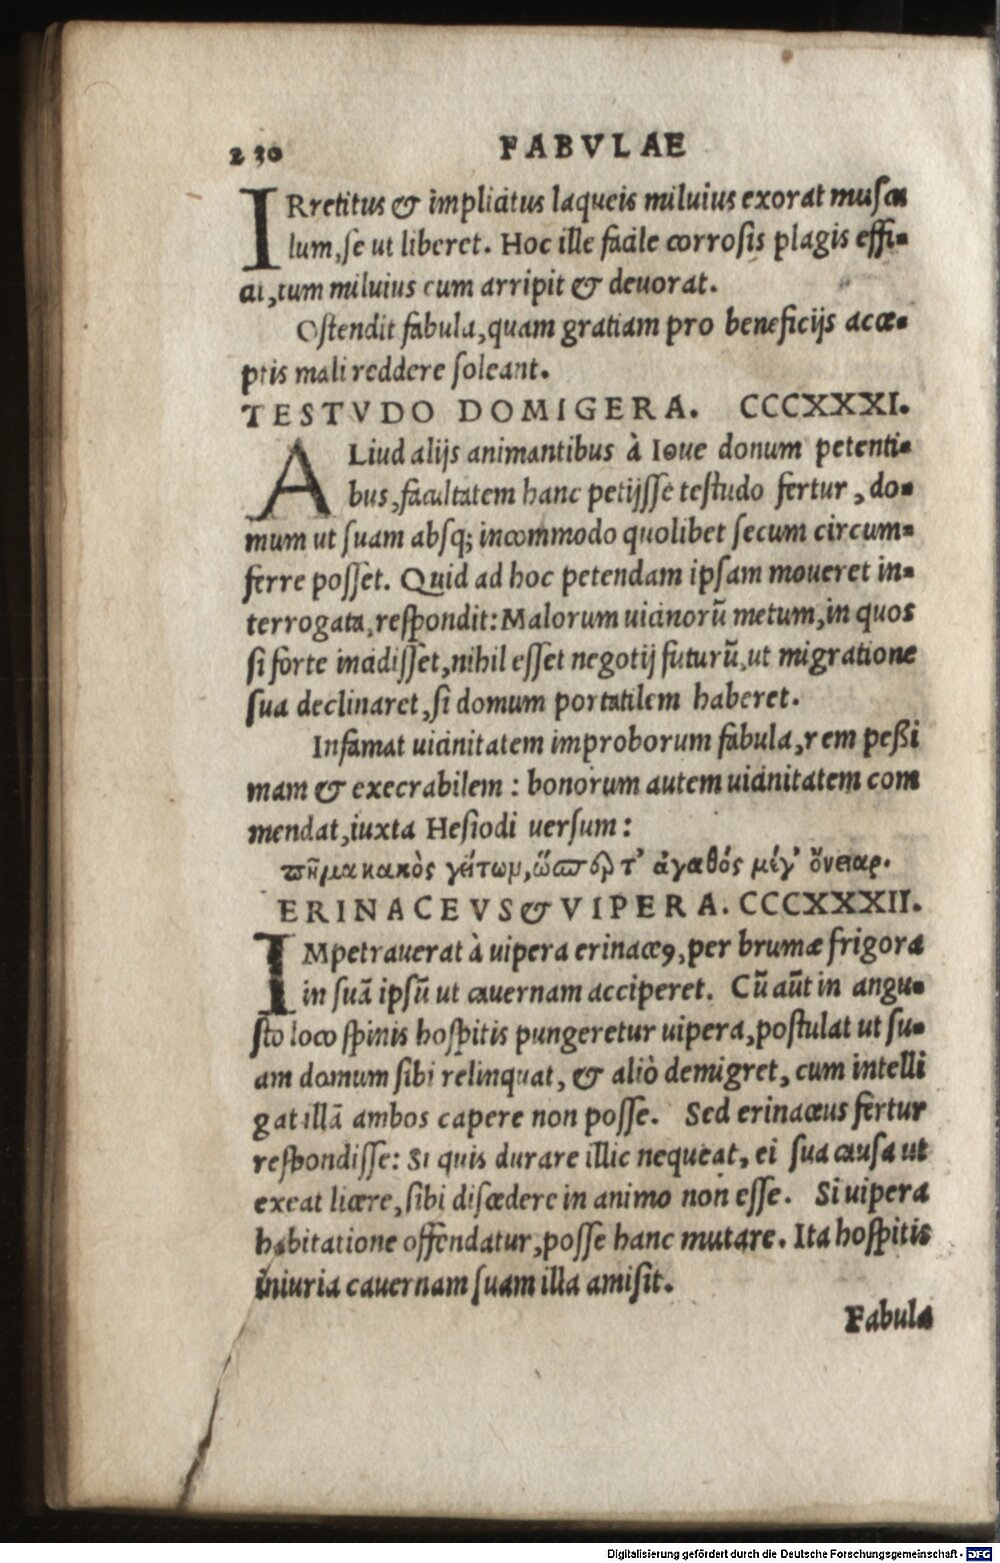 230 FABVLAE
IRretitus & implicitus laqueis miluius exorat muscu
lum, se ut liberet. Hoc ille facile corrosis plagis effi-
cit, tum miluius eum arripit & deuorat.
Ostendit fabula, quam gratiam pro beneficijs acce-
ptis mali reddere soleant.
TESTVDO DOMIGERA. CCCXXXI.
ALiud alijs animantibus à Ioue donum petenti-
bus, facultatem hanc petijsse testudo fertur, do-
mum ut suam absq; incommodo quolibet secum circum-
ferre posset. Quid ad hoc petendam ipsam moueret in-
terrogata, respondit: Malorum uicinorũ metum, in quos
si forte incidisset, nihil esset negotij futurũ, ut migratione
sua declinaret, si domum portatilem haberet.
Infamat uicinitatem improborum fabula, rem peßi
mam & execrabilem : bonorum autem uicinitatem com
mendat, iuxta Hesiodi uersum :
πῆμα κακὸς γείτων, ὅσσον τ' ἀγαθός μέγ' ὄνειαρ.
ERINACEVS & VIPERA. CCCXXXII.
IMpetrauerat à uipera erinaceꝰ, per brumæ frigora
in suã ipsũ ut cauernam acciperet. Cũ aũt in angu-
sto loco spinis hospitis pungeretur uipera, postulat ut su-
am domum sibi relinquat, & aliò demigret, cum intelli
gat illã ambos capere non posse. Sed erinaceus fertur
respondisse: Si quis durare illic nequeat, ei sua causa ut
exeat licere, sibi discedere in animo non esse. Si uipera
habitatione offendatur, posse hanc mutare. Ita hospitis
iniuria cauernam suam illa amisit.
Fabula
Digitalisierung gefördert durch die Deutsche Forschungsgemeinschaft - DFG